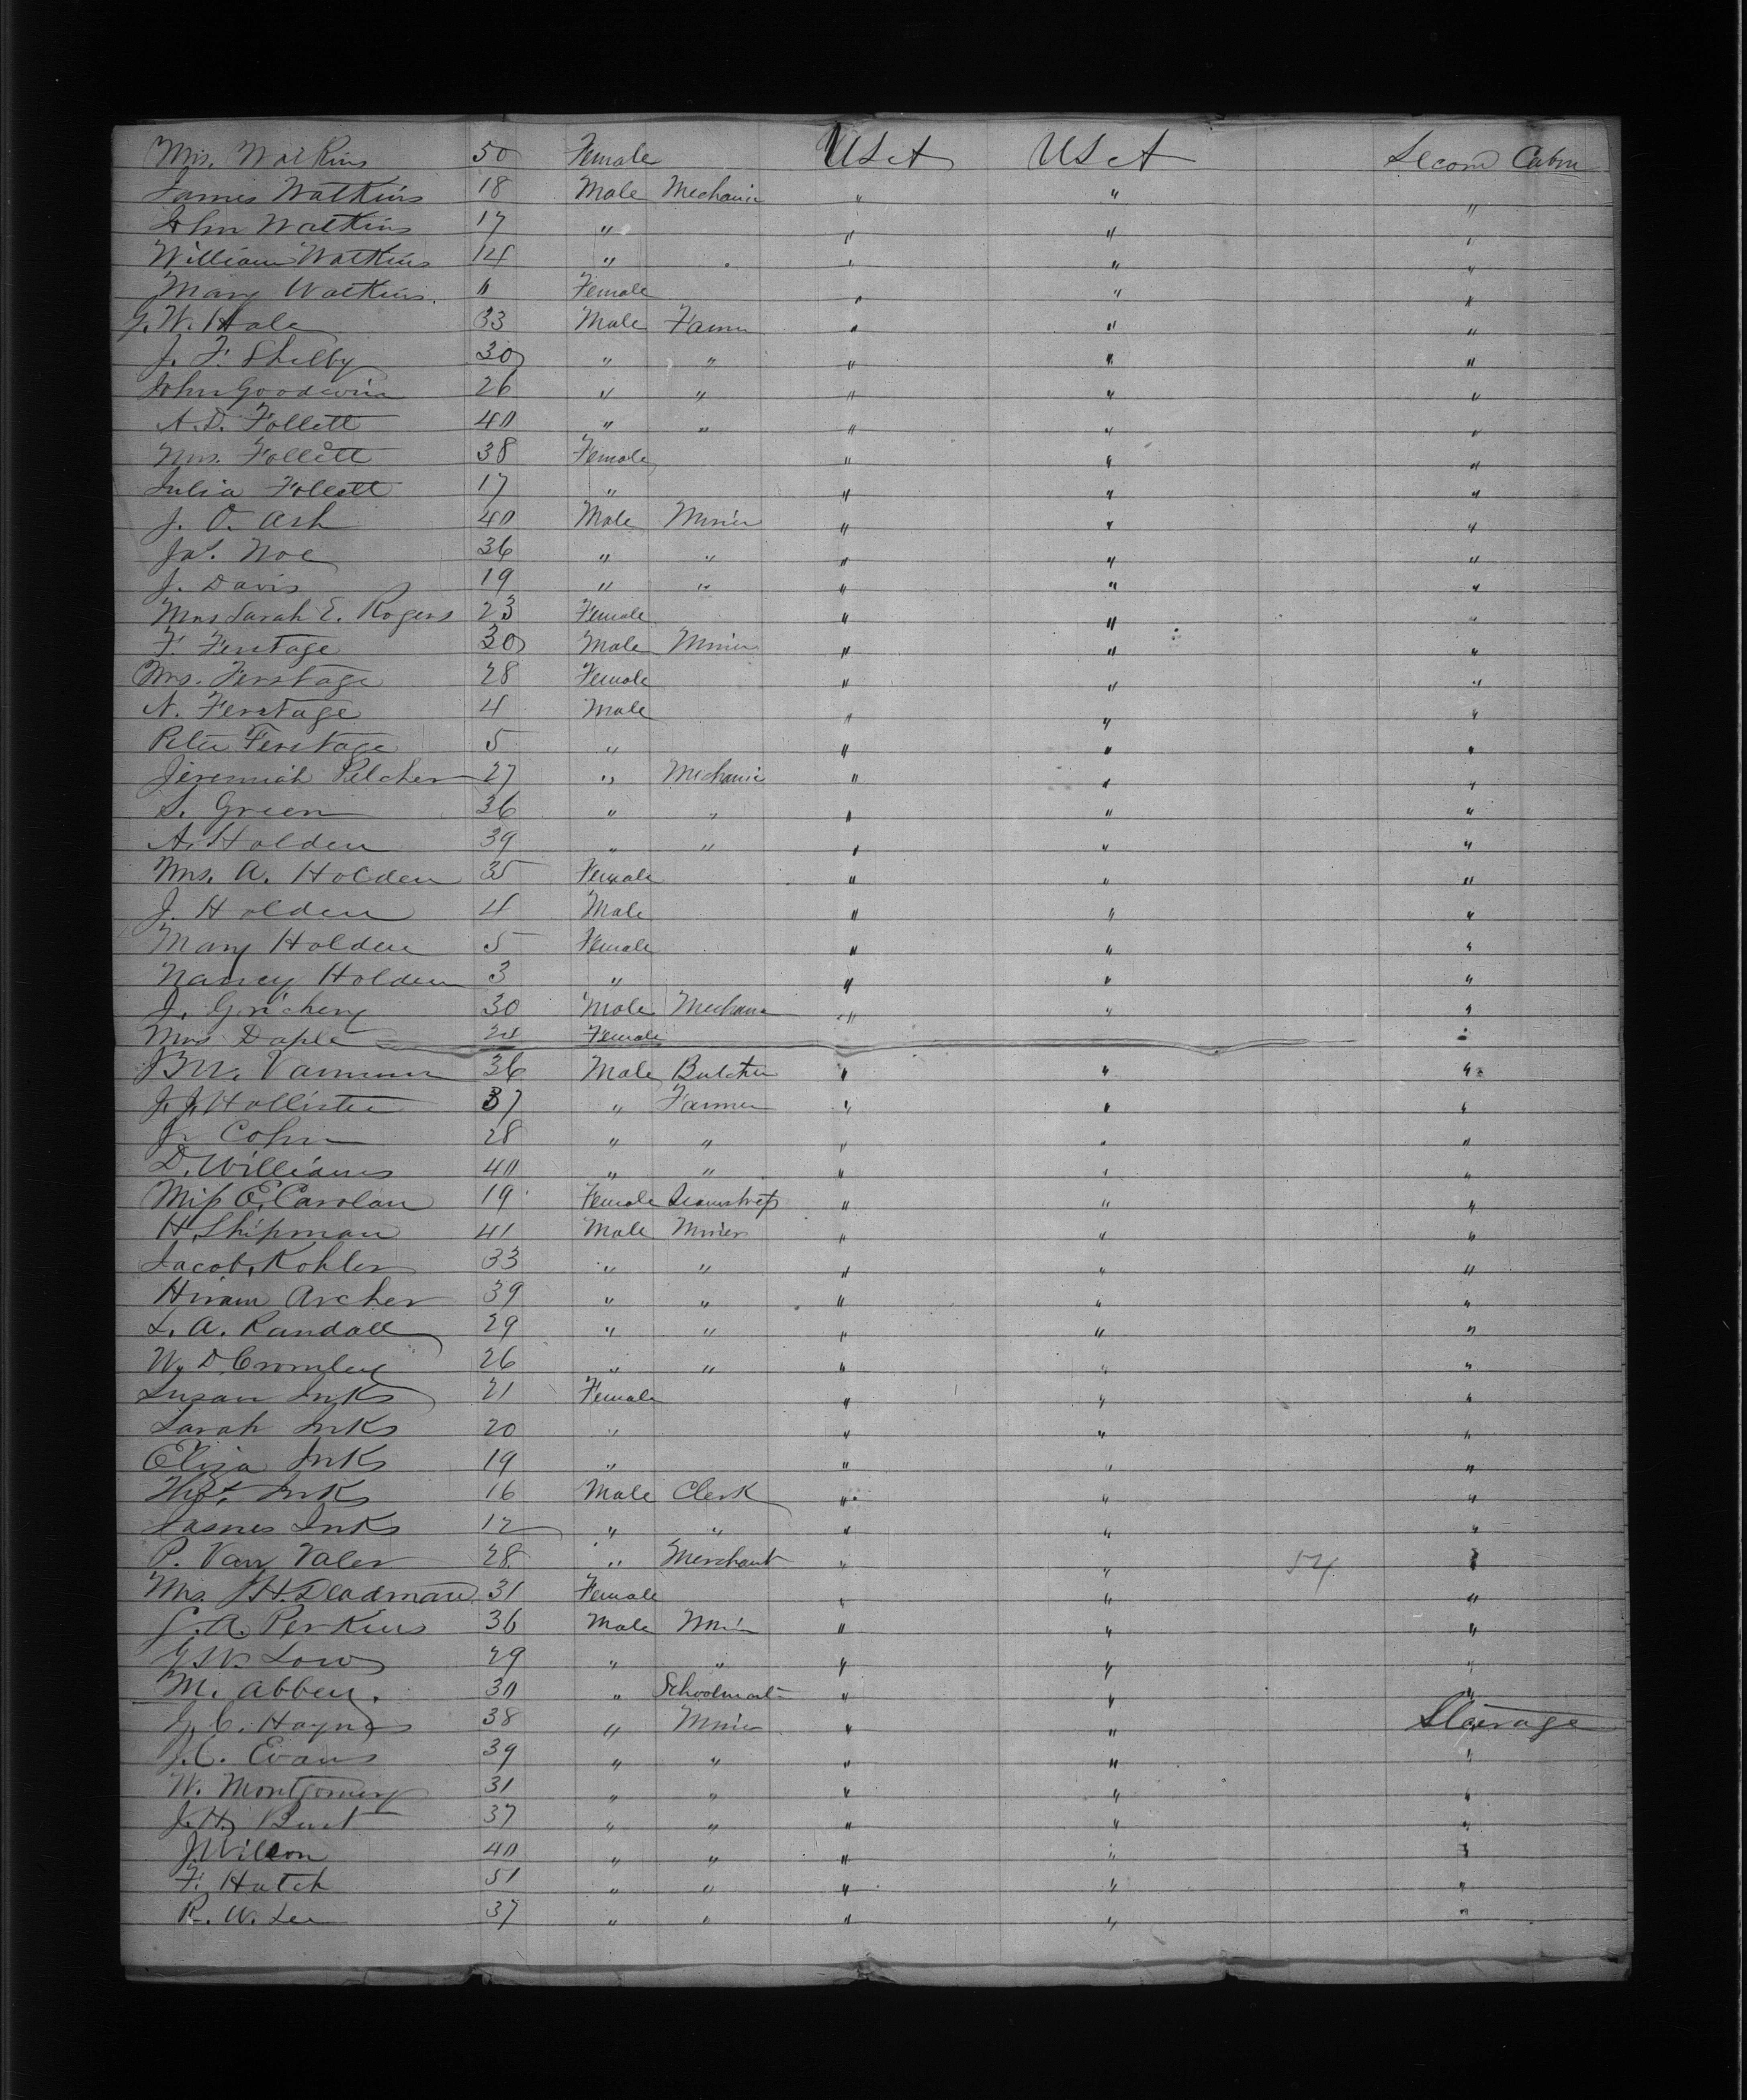 Mrs. Watkins 50 Female USA USA Second Cabin
James Watkins 18 Male Mechanic " " "
John Watkins 17 " " " "
William Watkins 14 " " " "
Mary Watkins. 11 Female " " "
G. W. Hale 33 Male Farmer " " "
J. F. Shelby 30 " " " " "
John Goodwin 26 " " " " "
A. D. Follett 40 " " " " "
Mrs. Follett 38 Female " " "
Julia Follett 17 " " " "
J. O. Ash 40 Male Miner " " "
Jas. Noe 36 " " " " "
J. Davis 19 " " " " "
Mrs Sarah E. Rogers 23 Female " " "
F. Ferstage 30 Male Miner " " "
Mrs. Ferstage 28 Female " " "
N. Ferstage 4 Male " " "
Peter Ferstage 5 " " " "
Jeremiah Pelcher 27 " Mechanic " " "
S. Green 36 " " " " "
A. Holden 39 " " " " "
Mrs. A. Holden 35 Female " " "
J. Holden 4 Male " " "
Mary Holden 5 Female " " "
Nancy Holden 3 " " " "
J. 30 Male Mechanic " " "
Mrs Daple 24 Female "
B. W. Varnum 36 Male Butcher " " "
J. J. Hollister 37 " Farmer " " "
J. Cohn 28 " " " " "
D. Williams 40 " " " " "
Miss E. Carolan 19 Female Seamstress " " "
H. Shipman 41 Male Miner " " "
Jacob Kohler 33 " " " " "
Hiram Archer 39 " " " " "
L. A. Randall 29 " " " " "
W. D. Cromley 26 " " " " "
Susan Inks 21 Female " " "
Sarah Inks 20 " " " "
Eliza Inks 19 " " " "
Thos. Inks 16 Male Clerk " " "
James Inks 12 " " " " "
P. Van Valer 28 " Merchant " " 54 "
Mrs. J. H. Deadman 31 Female " " "
S. A. Perkins 36 Male Miner " " "
Low 29 " " " " "
M. Abbey. 30 " Schoolmast " " "
G. C. Haynes 38 " Miner " " Steerage
J. C. Evans 39 " " " " "
W. Montgomery 31 " " " " "
J. H. Burt 37 " " " " "
J. Wilson 40 " " " " "
F. Hatch 51 " " " " "
R. W. Lee 37 " " " " "